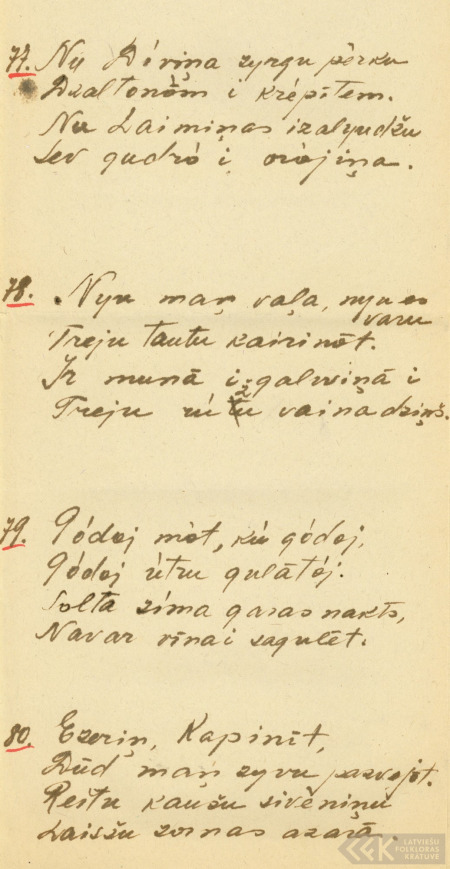 77. Nu Dīviņa zyrgu pērku
Dzaltonōm i krēpītem.
Nu Laimiņas izalyudžu
Sev gudró i orōjiņa.
78. Nyu maņ vaļa, nyu es
varu
Treju tautu kairinōt.
Ir munā i galwiņā i
Treju vainadziņš.
79. Gódoj mōt, kú gódoj,
Gódoj útru gulātōj.
Solta zíma garas nakts,
Navar vīnai sagulēt.
80. Ezeriņ, Kapinīt,
Dūd maņ zyvu pazvejōt.
Reitu kaušu sivēniņu
Laisšu zornas azarā.
LATVIEŠU
FOLKLORAS
KRĀTUVE